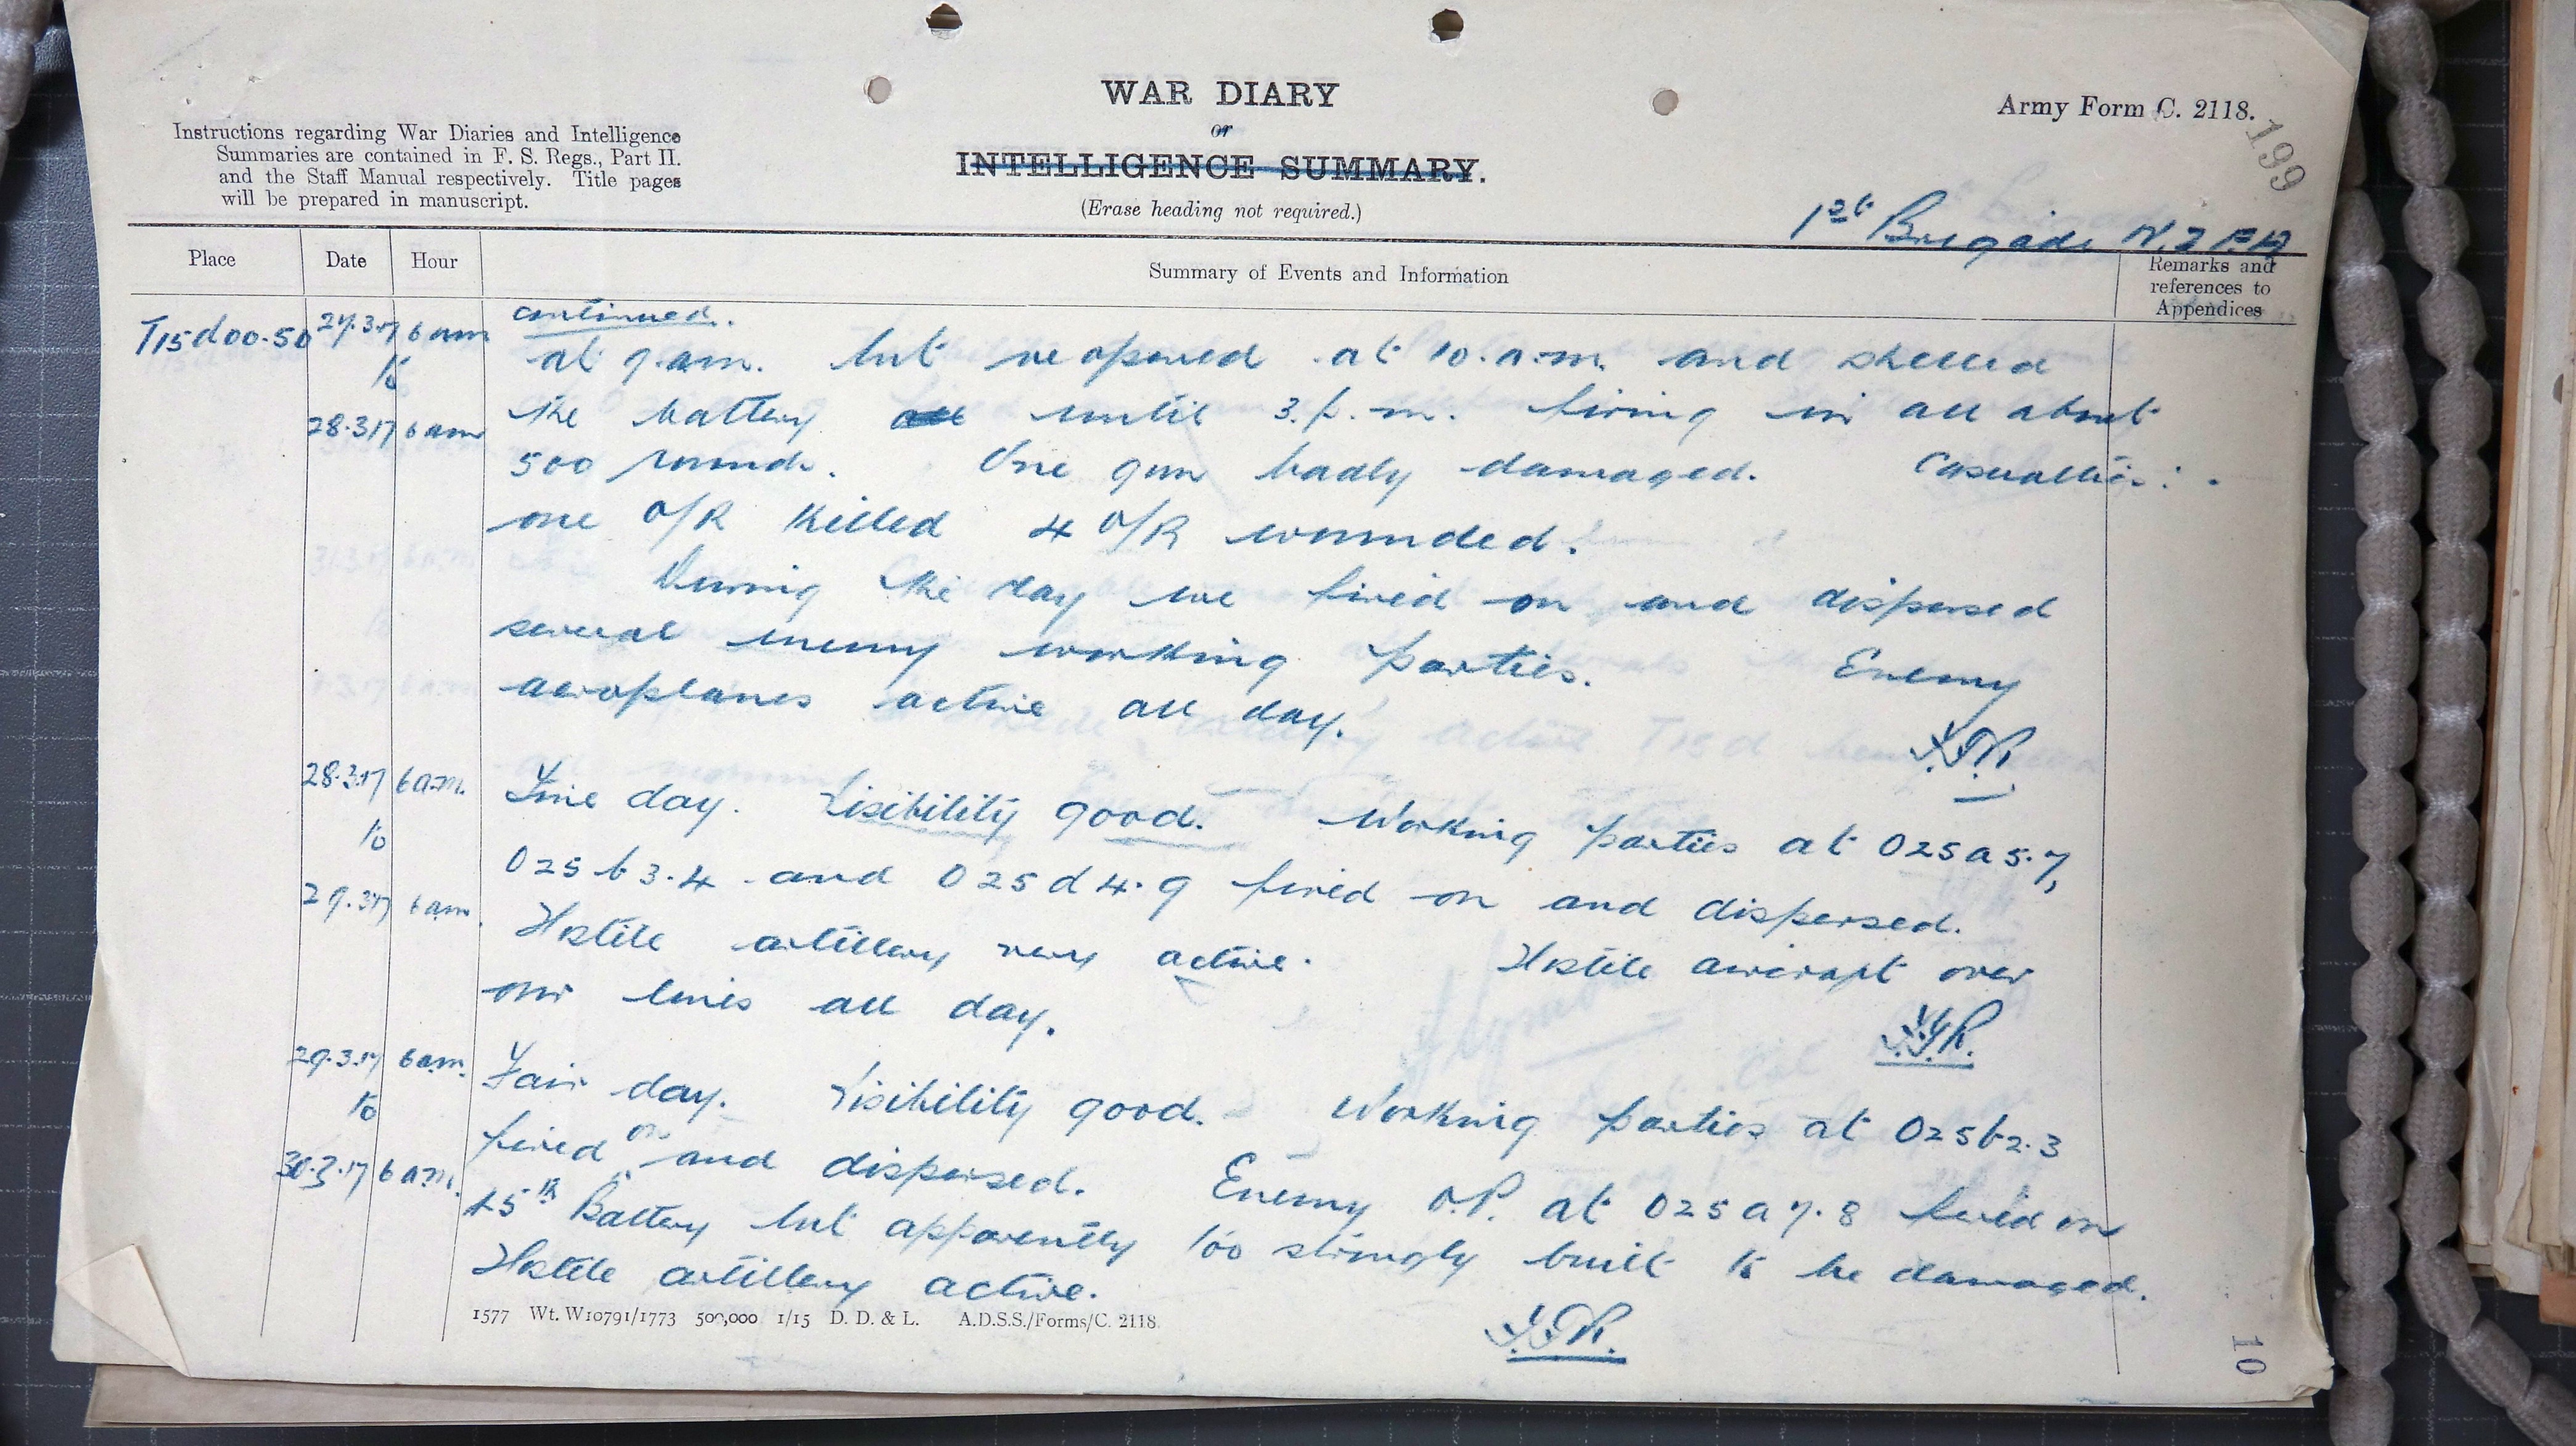 WAR DIARY
or
INTELLIGENCE SUMMARY.
(Erase heading not required.)
Army Form C. 2118.
199
Instructions regarding War Diaries and Intelligence
Summaries are contained in F. S. Regs., Part II.
and the Staff Manual respectively. Title pages
will be prepared in manuscript.
1st Brigade N.Z.F.A
Place Date Hour Summary of Events and Information Remarks and
references to
Appendices
T15d00.50 27.3.17 6 am continued.
at 9.am. but reopened at 10.a.m. and shelled
to
28.3.17 6 am the battery until 3.p.m. firing in all about
500 rounds. One gun badly damaged. Casualties:.
one O/R killed 4 O/R wounded.
During the day we fired on and dispersed
several enemy working parties. Enemy
aeroplanes active all day.
28.3.17 6 a.m. Fine day. Visibility good. Working parties at O25a5.7,
to
O25b3.4 and O25d4.9 fired on and dispersed.
29.3.17 6 am. Hostile artillery very active. Hostile aircraft over
our lines all day.
29.3.17 6 am. Fair day. Visibility good. Working parties at O25b2.3
to
fired on and dispersed. Enemy O.P. at O25a7.8 fired on
30.3.17 6 a.m. 15th Battery but apparently too strongly built to be damaged.
Hostile artillery active.
1577 Wt. W10791/1773 500,000 1/15 D. D. & L. A.D.S.S./Forms/C. 2118.
10